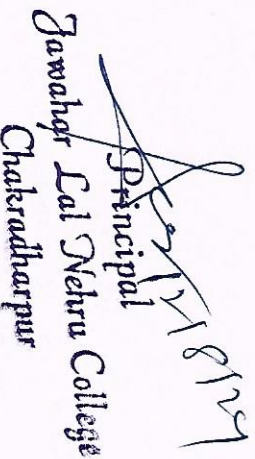 Principal
Jawahar Lal Nehru College
Chakradharpur